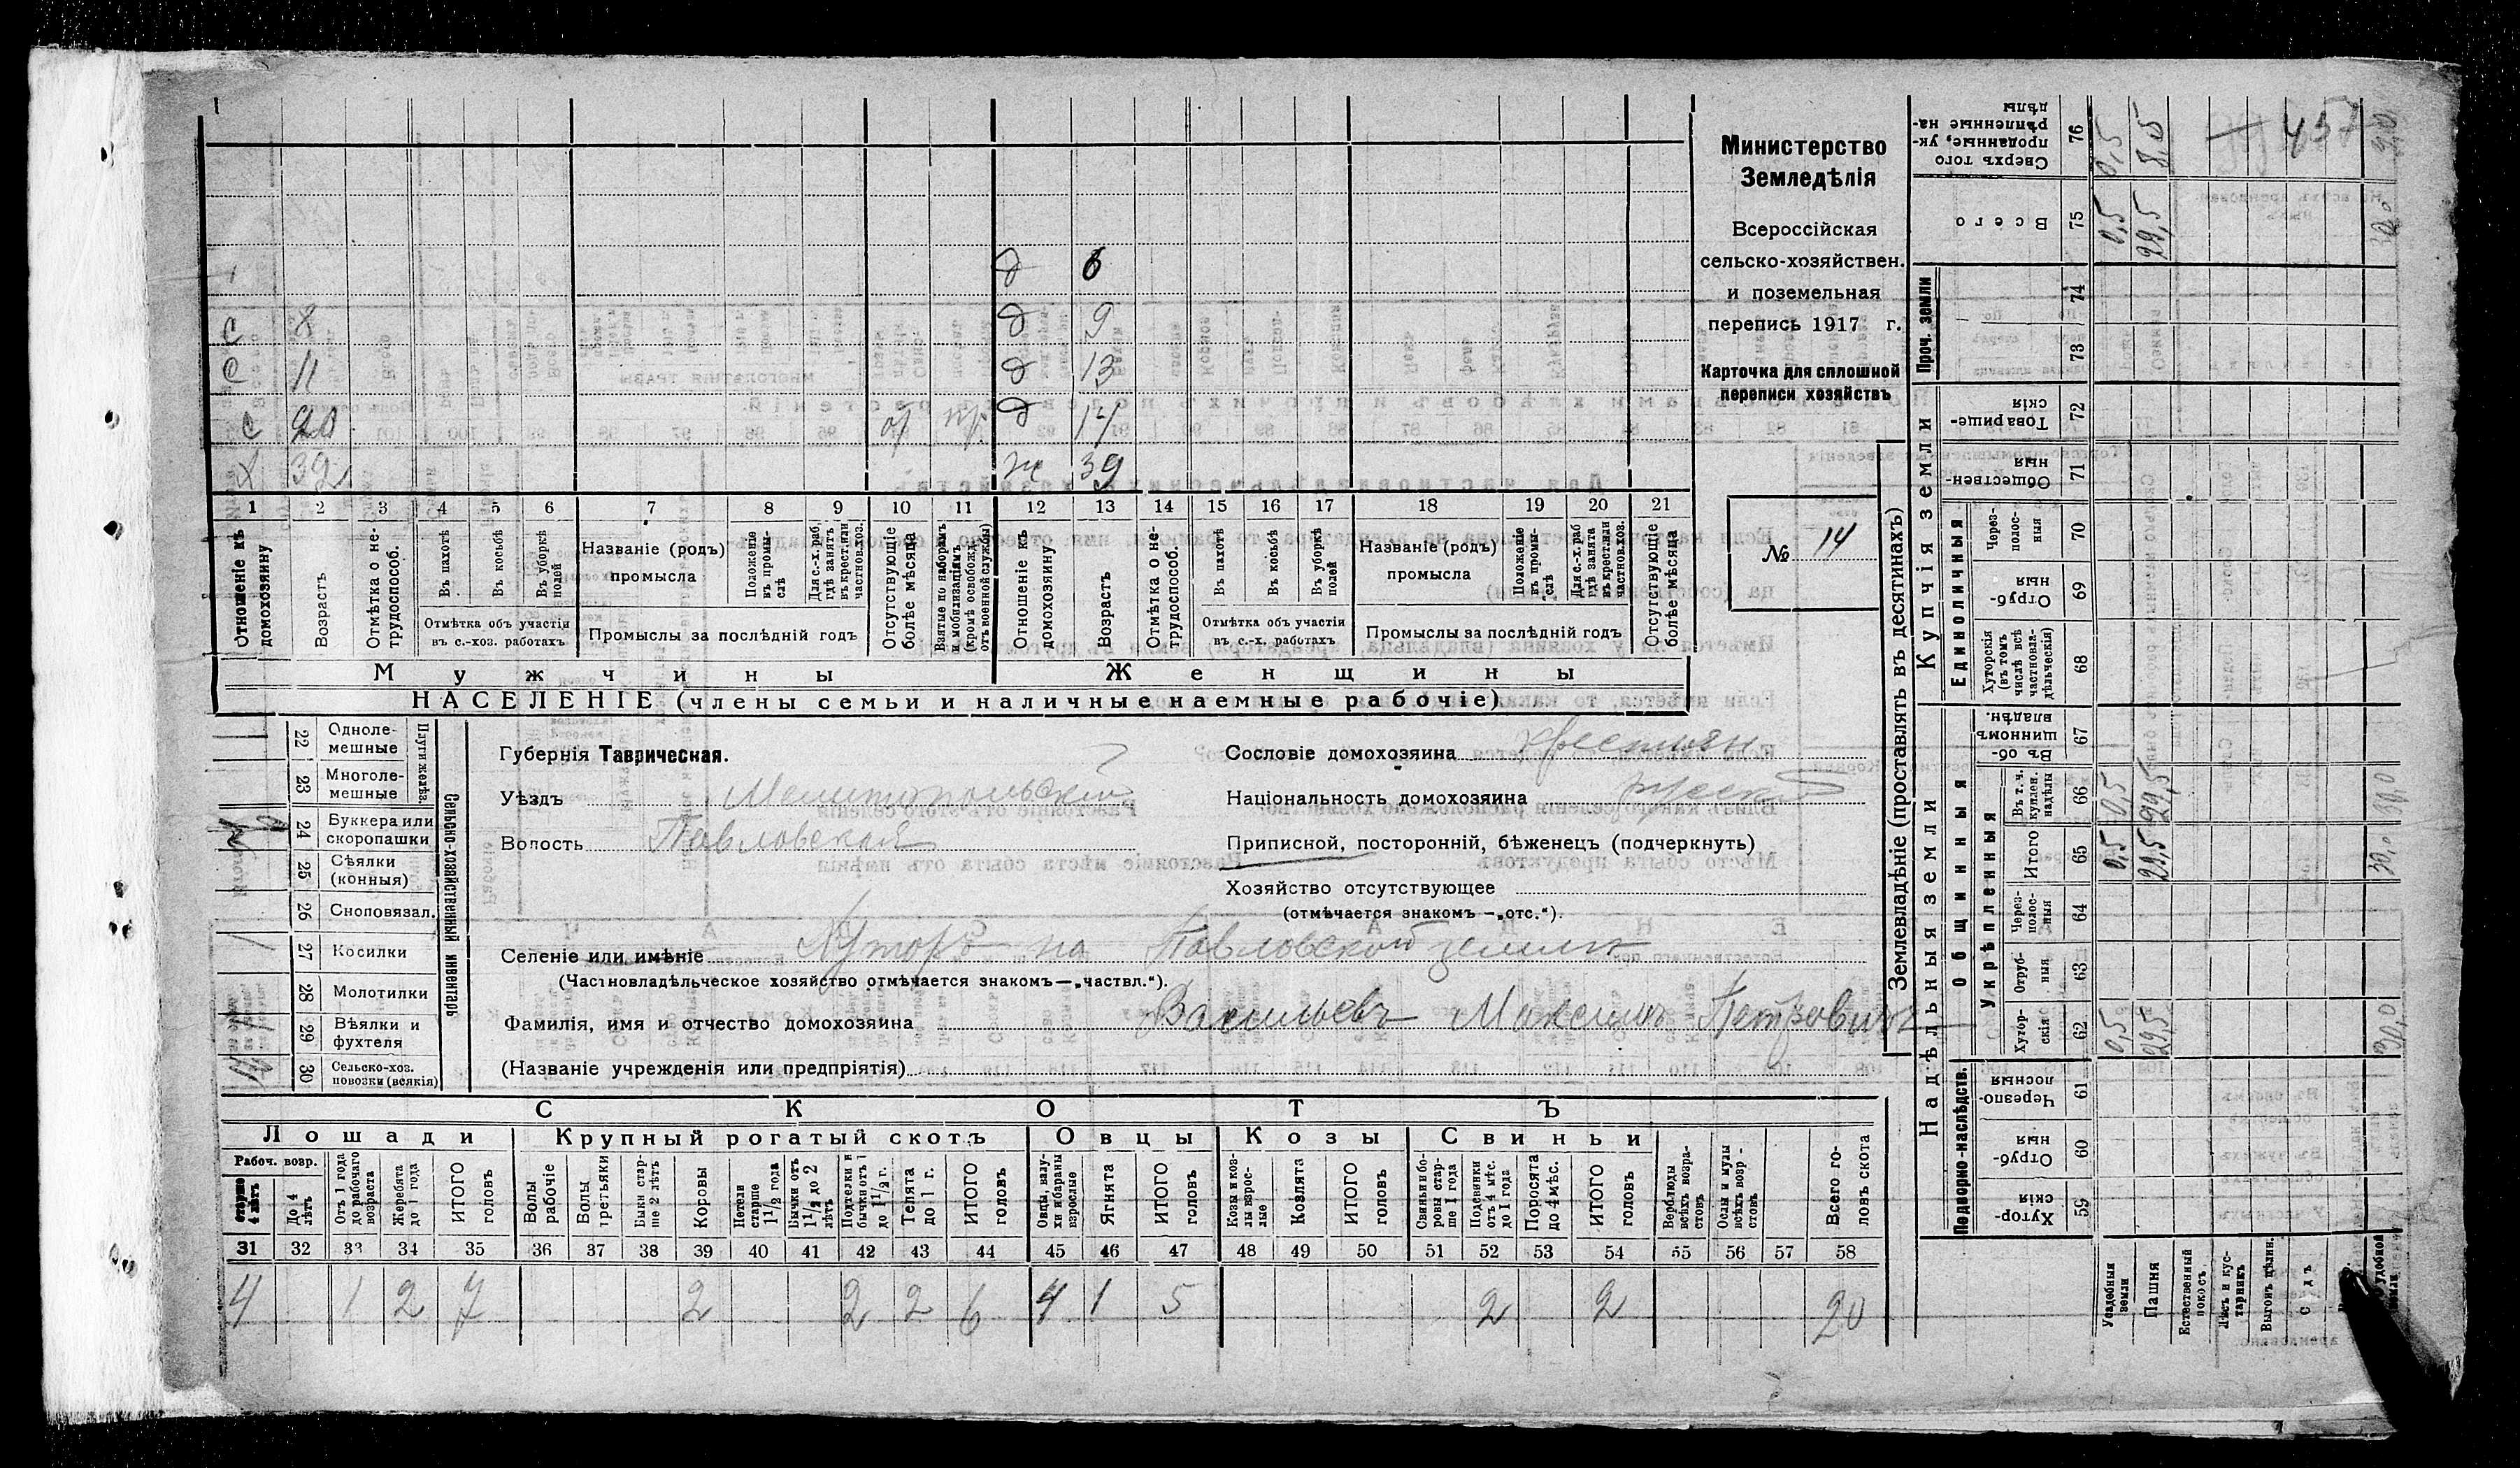 Министерство
Земледѣлія
Всероссійская
сельско-хозяйствен.
и поземельная
перепись 1917 г.
Карточка для сплошной
переписи хозяйствъ
№ 14
д 6
с 8 д 9
с 11 д 13
с 20 от пр. д 14
х 39 ж 39
1 2 3 4 5 6 7 8 9 10 11 12 13 14 15 16 17 18 19 20 21
Отношеніе къ домохозяину
Возрастъ
Отмѣтка о не-трудоспособ.
Въ пахотѣ
Въ косьбѣ
Въ уборкѣ полей
Отмѣтка объ участіи
въ с.-хоз. работахъ
Названіе (родъ)
промысла
Положеніе въ промы-слѣ
Для с.-х. раб. гдѣ занятъ въ крест. или частнов. хоз.
Промыслы за послѣдній годъ
Отсутствующіе болѣе мѣсяца
Взятые по наборамъ и мобилизаціямъ (кромѣ освобожд. отъ военной службы)
Отношеніе къ домохозяину
Возрастъ
Отмѣтка о не-трудоспособ.
Въ пахотѣ
Въ косьбѣ
Въ уборкѣ полей
Отмѣтка объ участіи
въ с.-х. работахъ
Названіе (родъ)
промысла
Положеніе въ промы-слѣ
Для с.-х. раб. гдѣ занята въ крест. или частнов. хоз.
Промыслы за послѣдній годъ
Отсутствующіе болѣе мѣсяца
Мужчины Женщины
НАСЕЛЕНІЕ (члены семьи и наличные наемные рабочіе)
Сельско-хозяйственный инвентарь
Плуги желѣз.
22 Одноле-мешные
23 Многоле-мешные
24 Буккера или скоропашки
25 Сѣялки (конныя)
26 Сноповязал.
27 Косилки
28 Молотилки
29 Вѣялки и фухтеля
30 Сельско-хоз. повозки (всякія)
Губернія Таврическая.
Уѣздъ Мелитопольскій
Волость Павловская
Сословіе домохозяина крестьян
Національность домохозяина русской
Приписной, посторонній, бѣженецъ (подчеркнуть)
Хозяйство отсутствующее
(отмѣчается знакомъ—„отс.“).
Селеніе или имѣніе Хуторъ на Павловской земли
(Частновладѣльческое хозяйство отмѣчается знакомъ—„частвл.“).
Фамилія, имя и отчество домохозяина Васильевъ Максимъ Петровичъ
(Названіе учрежденія или предпріятія)
СКОТЪ
Лошади Крупный рогатый скотъ Овцы Козы Свиньи
Рабоч. возр.
старше 4 лѣтъ
До 4 лѣтъ
Отъ 1 года до рабочаго возраста
Жеребята до 1 года
ИТОГО головъ
Волы рабочіе
Волы третьяки
Быки стар-ше 2 лѣтъ
Коровы
Нетели старше 1½ года
Бычки отъ 1½ до 2 лѣтъ
Подтелки и бычки отъ 1 до 1½ г.
Телята до 1 г.
ИТОГО головъ
Овцы, валу-хи и бараны взрослые
Ягнята
ИТОГО головъ
Козы и коз-лы взрос-лые
Козлята
ИТОГО головъ
Свиньи и бо-ровы стар-ше 1 года
Подсвинки отъ 4 мѣс. до 1 года
Поросята до 4 мѣс.
ИТОГО головъ
Верблюды всѣхъ возра-стовъ
Ослы и мулы всѣхъ возр-стовъ
Всего го-ловъ скота
31 32 33 34 35 36 37 38 39 40 41 42 43 44 45 46 47 48 49 50 51 52 53 54 55 56 57 58
4 1 2 7 2 2 2 6 4 1 5 2 2 20
Землевладѣніе (проставлять въ десятинахъ)
Надѣльныя земли Купчія земли
Подворно-наслѣдств. Общинныя Единоличныя Проч. земли
Укрѣпленныя
59 Хутор-скія
60 Отруб-ныя
61 Черезпо-лосныя
62 Хутор-скія
63 Отруб-ныя
64 Через-полос-ныя
65 Итого
66 Въ т. ч. куплен. надѣлы
67 Въ об-щинномъ владѣн.
68 Хуторскія (въ томъ числѣ всѣ частновла-дѣльческія)
69 Отруб-ныя
70 Через-полос-ныя
71 Обществен-ныя
72 Товарище-скія
73
74
75 Всего
76 Сверхъ того проданные, ук-рѣпленные на-дѣлы
Усадебныя земли 0,5 0,5 0,5 0,5 0,5
Пашня 29,5 29,5 29,5 29,5 8,5
Естественный покосъ
Лѣсъ и кус-тарникъ
Выгонъ цѣлин.
Садъ
удобной земли 30,0 30,0 30,0 30,0 9,0
457